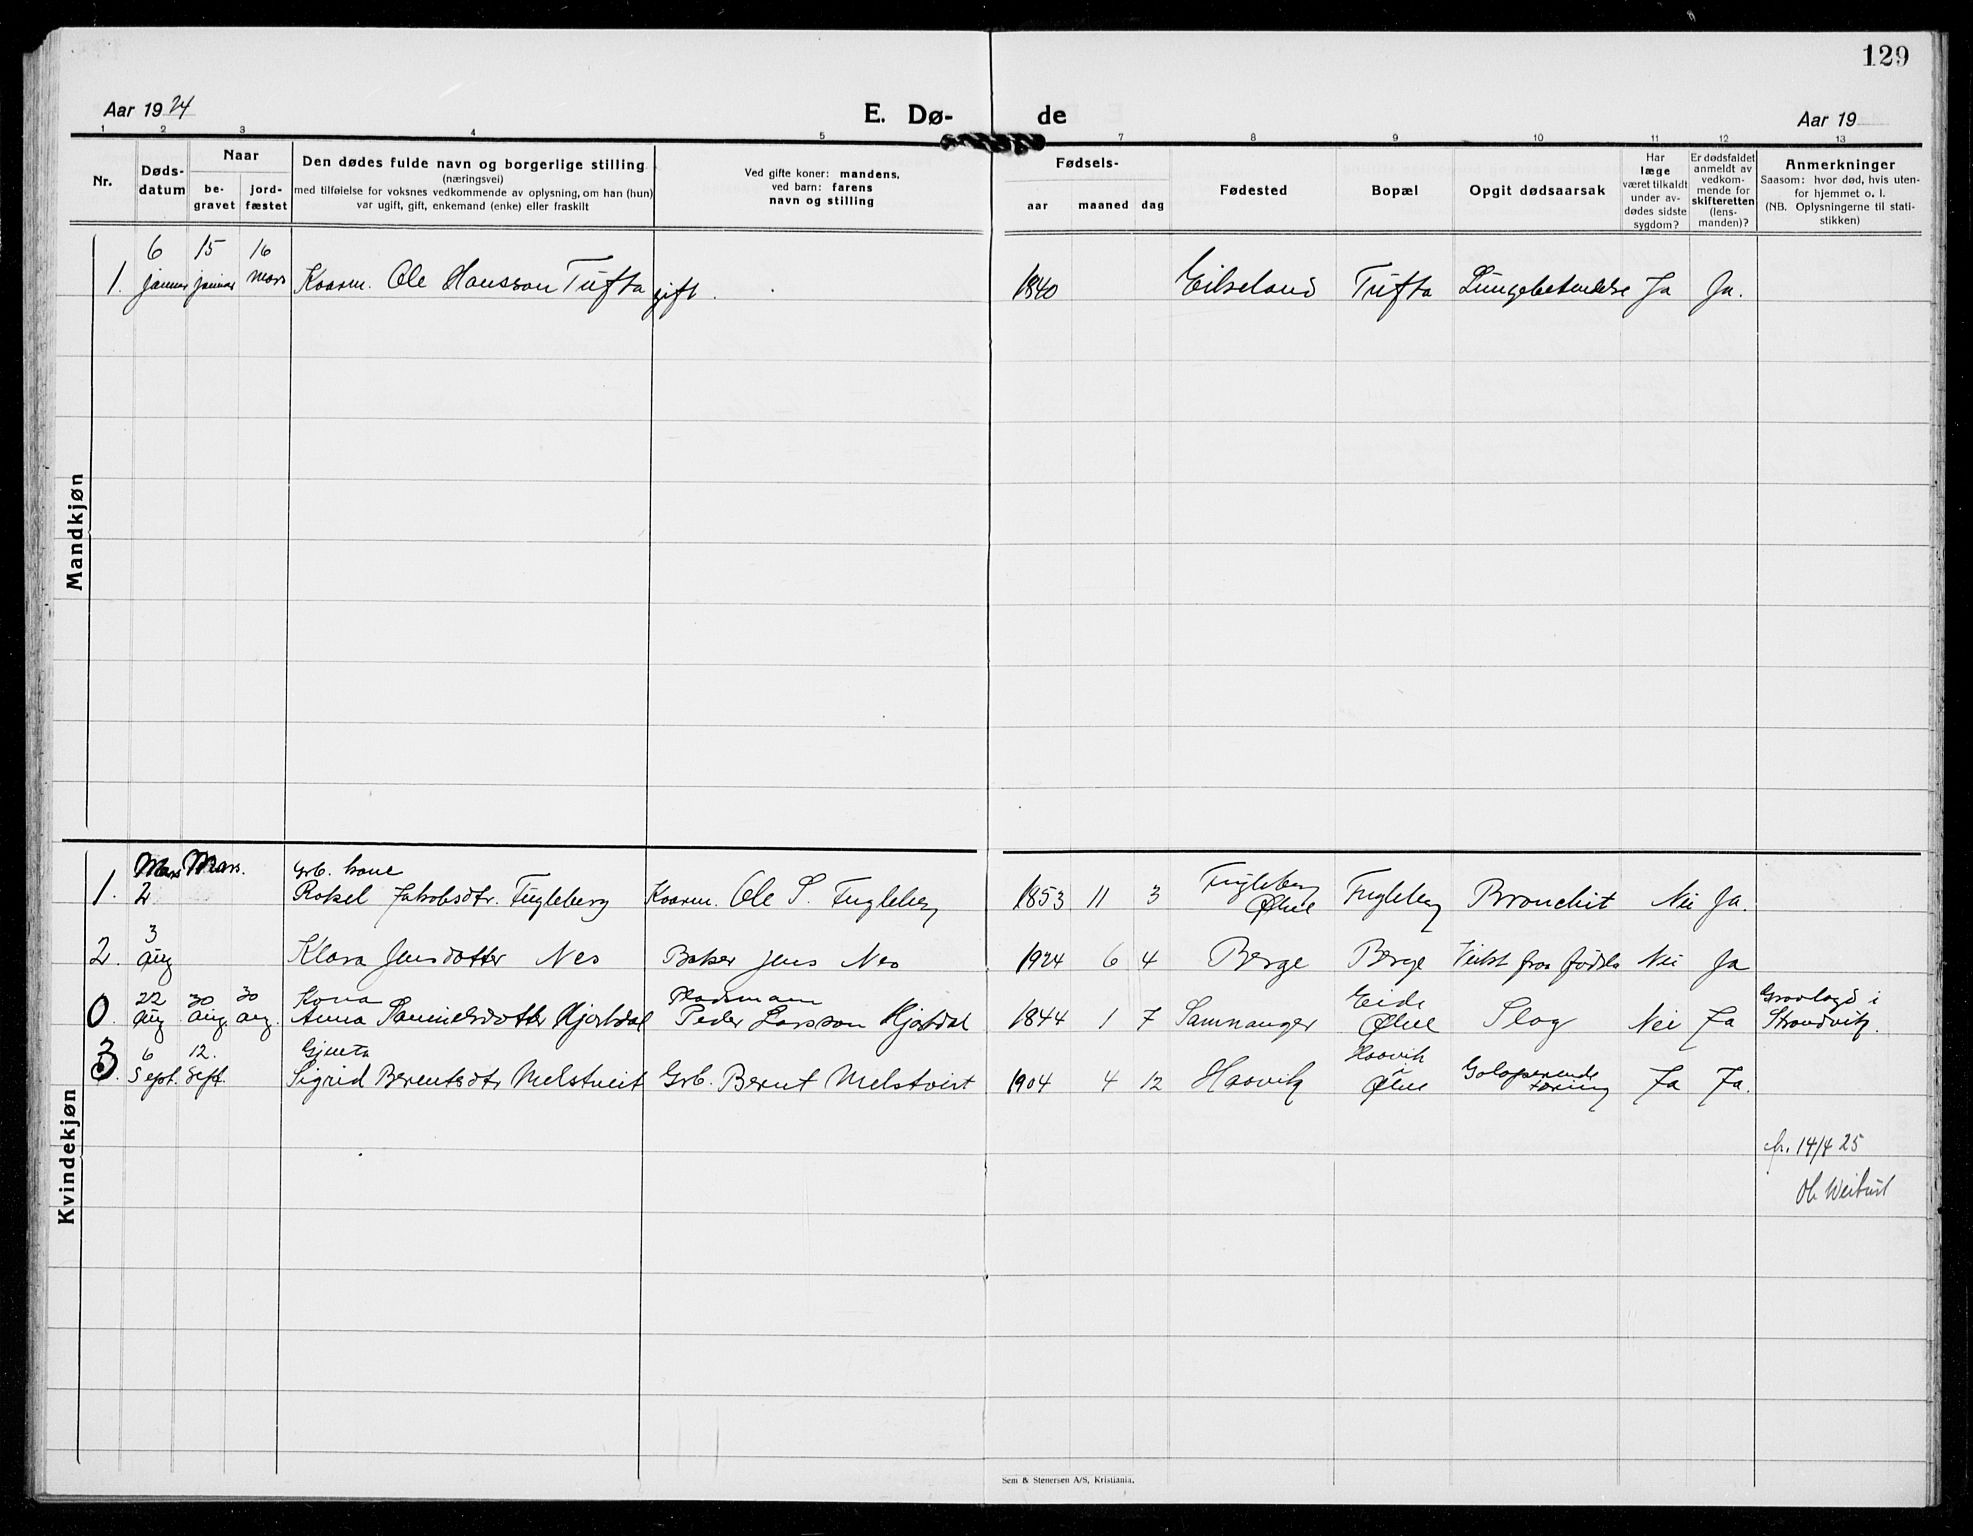 129
Aar 1924
E. Dø-
de
Aar 19
1 2 3 4 5 7 8 9 10 11 12 13
Nr.
Døds-
datum
Naar
be-
gravet
jord-
fæstet
Den dødes fulde navn og borgerlige stilling
(næringsvei)
med tilføielse for voksnes vedkommende av oplysning, om han (hun)
var ugift, gift, enkemand (enke) eller fraskilt
Ved gifte koner: mandens,
ved barn: farens
navn og stilling
Fødsels-
aar maaned dag
Fødested
Bopæl
Opgit dødsaarsak
Har
læge
været tilkaldt
under av-
dødes sidste
sygdom?
Er dødsfaldet
anmeldt av
vedkom-
mende for
skifteretten
(lens-
manden)?
Anmerkninger
Saasom: hvor død, hvis uten-
for hjemmet o. l.
(NB. Oplysningerne til stati-
stikken)
Mandkjøn
6 15 16
1. januar januar mars Kaarm. Ole Hansson Tufta gift. 1840 Eikeland Tufta Lungebetendelse Ja Ja.
Kvindekjøn
Mars Mars. Grb. kone
1. 2 Rakel Jakobsdtr. Fugleberg Kaarm. Ole S. Fugleberg 1853 11 3 Fugleberg Ølve Fugleberg Bronchit Nei Ja.
3
2. Aug Klara Jensdotter Nes Baker Jens Nes 1924 6 4 Berge Berge Veikt fraa fødsla Nei Ja
22 30 30 Kona Pladsmann Eide Gravlagd i
0. Aug Aug. Aug. Anna Samuelsdotter Hjortdal Peder Larsson Hjortdal 1844 1 7 Samnanger Ølve Slag Nei Ja Strandvik.
6 12. Gjenta Haavik
3. Sept. Sept. Sigrid Berentsdtr Melstveit Grb. Bernt Melstveit 1904 4 12 Haavik Ølve Galoperende tæring Ja Ja.
14/4 25
Sem & Stenersen A/S, Kristiania.